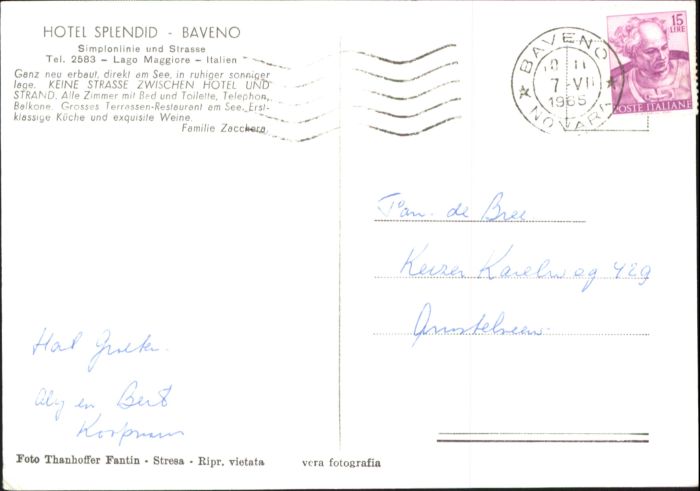 HOTEL SPLENDID - BAVENO
Simplonlinie und Strasse
Tel. 2583 - Lago Maggiore - Italien
Ganz neu erbaut, direkt am See, in ruhiger sonniger
lage. KEINE STRASSE ZWISCHEN HOTEL UND
STRAND. Alle Zimmer mit Bad und Toilette, Telephon,
Balkone. Grosses Terrassen-Restaurant am See. Erst-
klassige Küche und exquisite Weine.
Familie Zacchera
BAVENO
7-VII
1965
NOVARA
15
LIRE
POSTE ITALIANE
Fam. de Bree
Keizer Karelweg 429
Amstelveen
Hart. Groeten.
Aly en Bert
Koopman
Foto Thanhoffer Fantin - Stresa - Ripr. vietata
vera fotografia